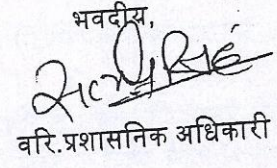 भवदीय,
वरि.प्रशासनिक अधिकारी